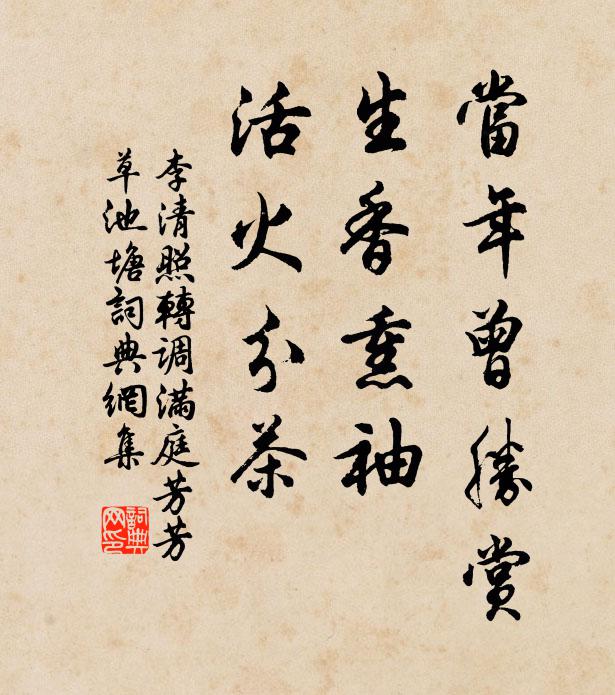 當年曾勝賞
生香熏袖
活火分茶
李清照轉調滿庭芳芳
草池塘詞典網集
詞典
网印